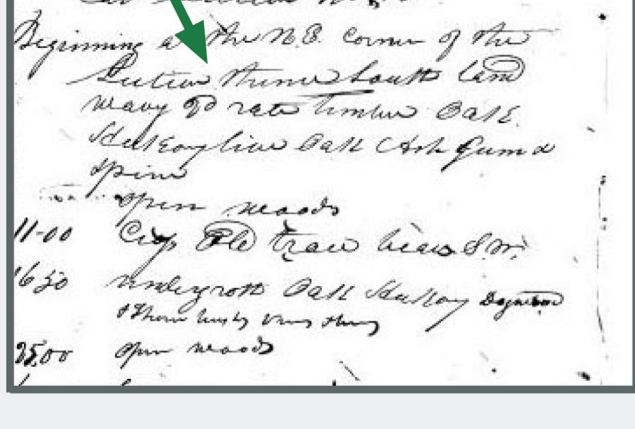 Beginning at the N.E. Corner of the
Section thence South Land
wavy 2d rate timber Oak
Hickory live Oak Ash Gum &
pine
open woods
11-00 Crop Old trace bears S.W.
16 50 undergroth Oak Hickory Dogwood
& thorn bushes vines
25,00 open woods